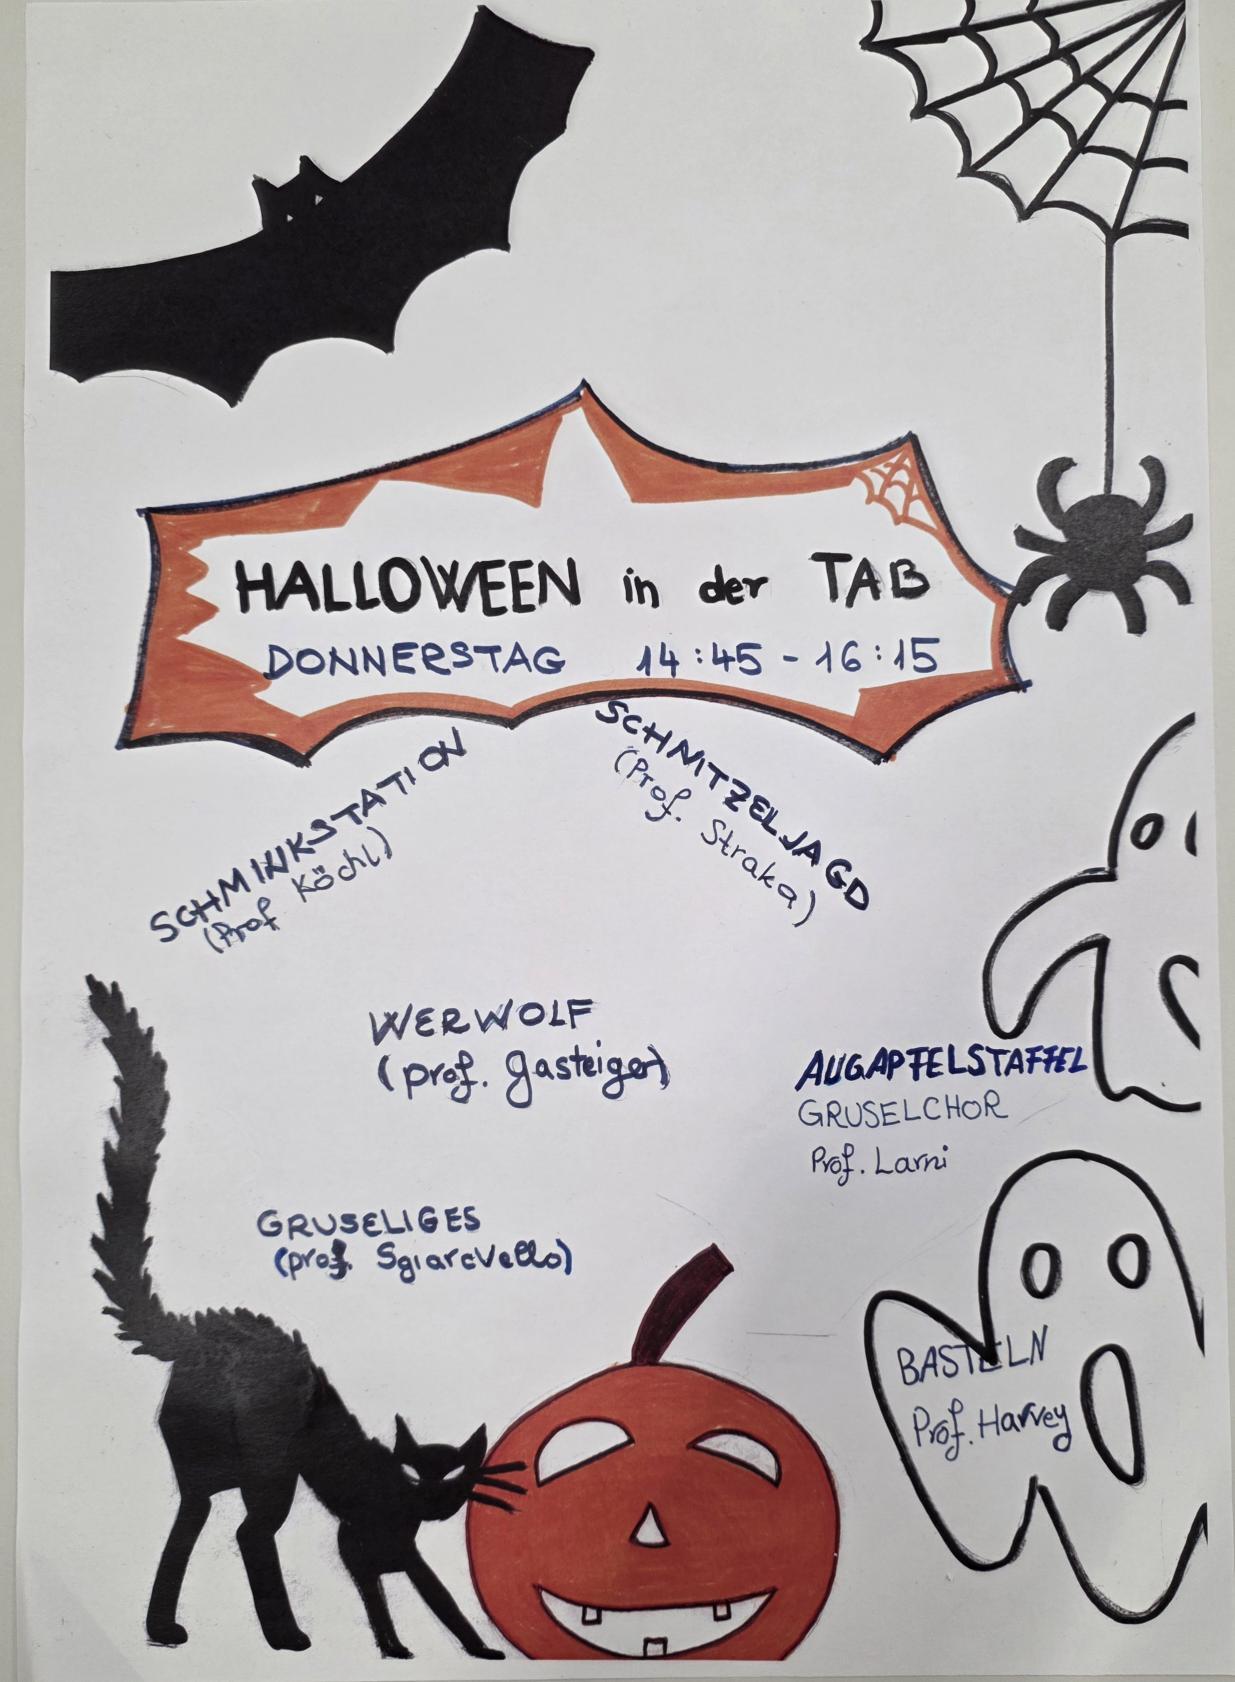 HALLOWEEN in der TAB
DONNERSTAG 14:45 - 16:15
SCHMINKSTATION
(Prof Köchl)
SCHNITZELJAGD
(Prof. Straka)
WERWOLF
(prof. Gasteiger)
AUGAPFELSTAFFEL
GRUSELCHOR
Prof. Larni
GRUSELIGES
(prof. Sgiarovello)
BASTELN
Prof. Harvey